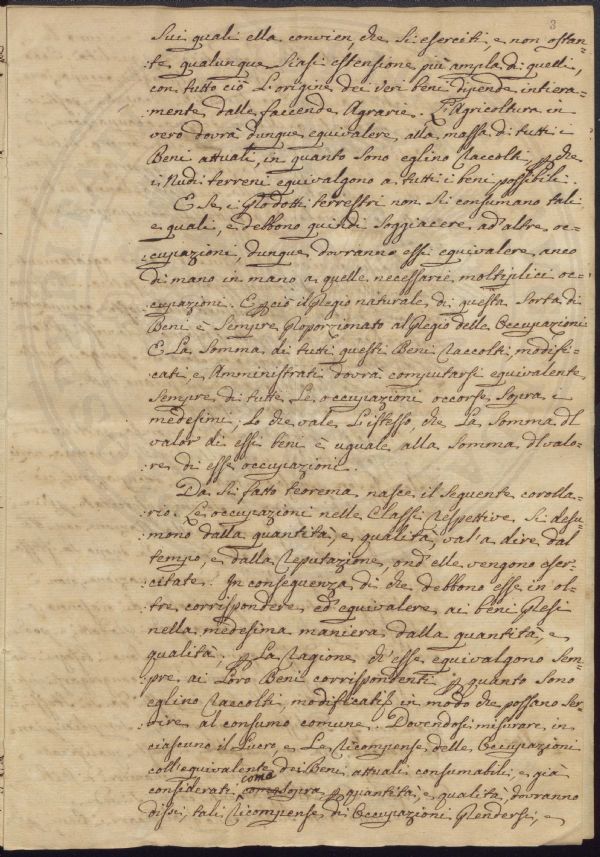 3
sui quali ella convien, che si eserciti, e non ostan-
:te qualunque siasi estensione più ampla di quelli,
con tutto ciò l'origine dei veri beni dipende intiera-
:mente dalle faccende Agrarie. L'Agricoltura in
vero dovrà dunque equivalere alla massa di tutti i
Beni attuali, in quanto sono eglino raccolti, che
i nudi terreni equivalgono a tutti i beni possibili.
E se i Prodotti terrestri non si consumano tali
e quali, e debbono quindi soggiacere ad altre oc-
:cupazioni, dunque dovranno essi equivalere anco
di mano in mano a quelle necessarie moltiplici oc-
:cupazioni. E perciò il Pregio naturale di questa sorta di
Beni è sempre Proporzionato al Pregio delle Occupazioni:
E la somma di tutti questi Beni raccolti, modifi-
:cati, e Amministrati dovrà computarsi equivalente
sempre di tutte le occupazioni occorse sopra i
medesimi; Lo che vale l'istesso, che la somma del
valor di essi beni è uguale alla somma del valo-
:re di esse occupazioni.
Da sì fatto teorema nasce il seguente corolla-
:rio. Le occupazioni nelle Classi respettive si desu-
:mono dalla quantità, e qualità, val' a dire dal
tempo, e dalla reputazione, ond'elle vengono eser-
:citate. In conseguenza di che debbono esse in ol-
:tre corrispondere ed equivalere ai beni Presi
nella medesima maniera dalla quantità, e
qualità, per la ragione ch'esse equivalgono sem-
:pre ai loro Beni corrispondenti per quanto sono
eglino raccolti, modificati in modo che possano ser-
:vire al consumo comune. Dovendosi misurare in
ciascuno il Lucro, e le ricompense delle Occupazioni
coll'equivalente dei Beni attuali consumabili, e già
considerati come sopra per quantità, e qualità, dovranno
dissi, tali ricompense di Occupazioni Prendersi, e